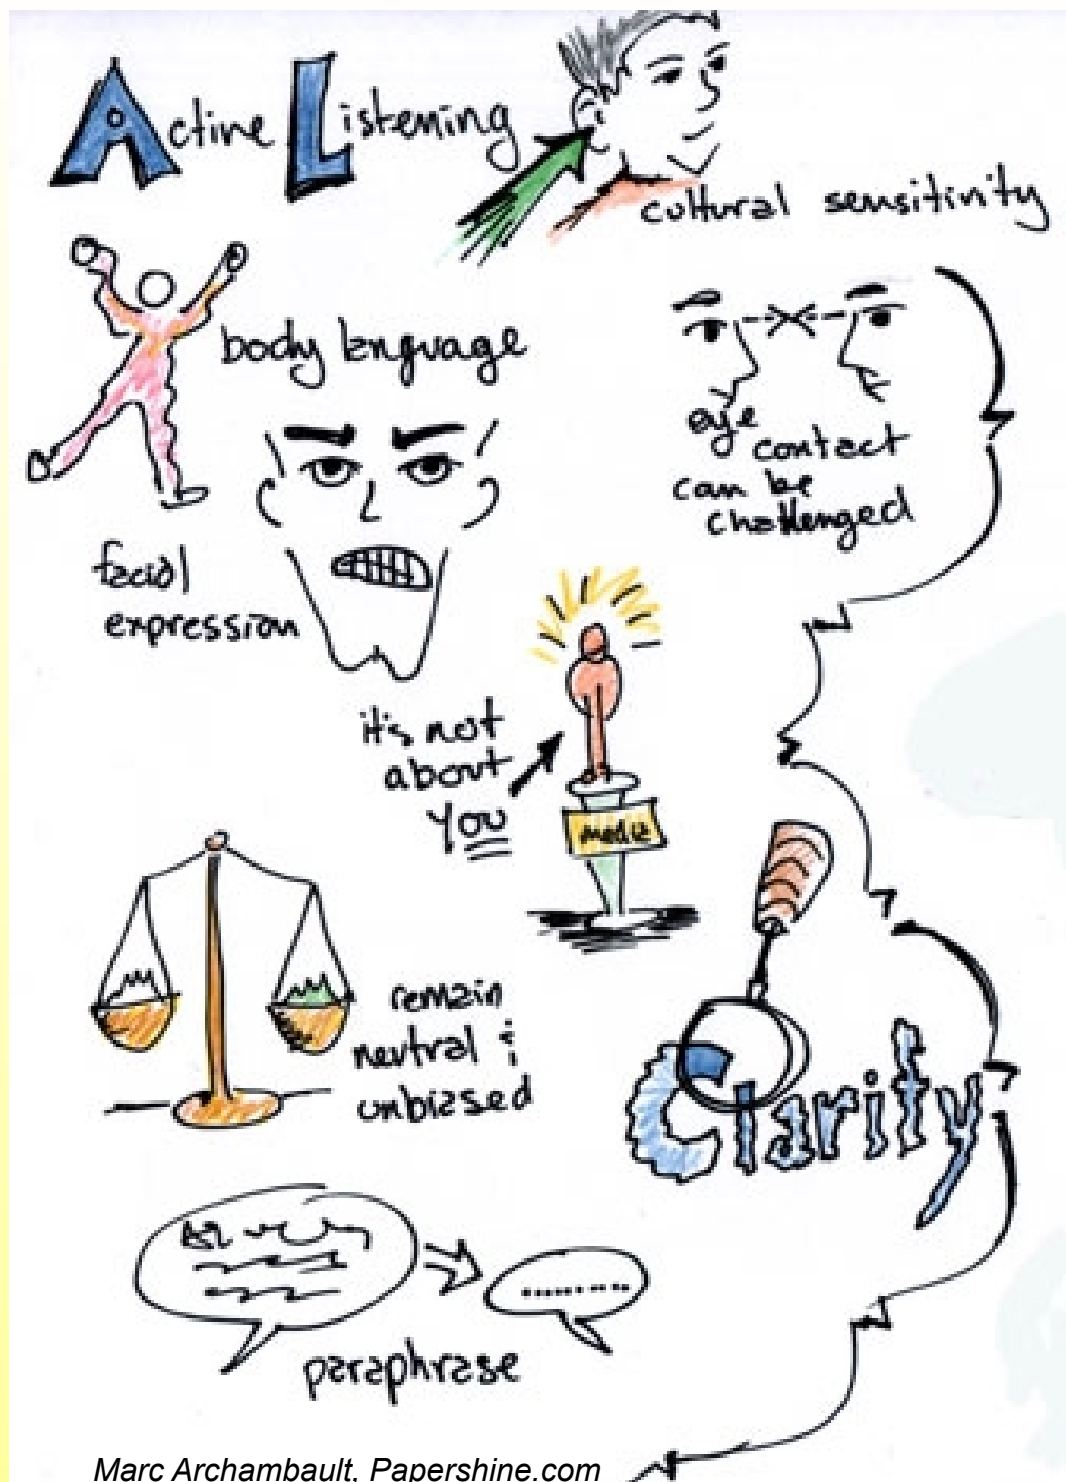 Active Listening
cultural sensitivity
body language
eye
contact
can be
challenged
facial
expression
it's not
about
you
media
remain
neutral &
unbiased
Clarify
paraphrase
Marc Archambault, Papershine.com